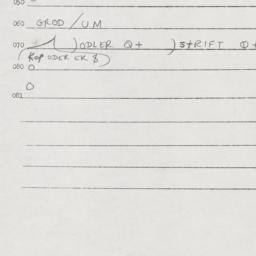 050
060 GROD / UM
070 ) ODLER Q+ ) StRIFT Q+
( KOP ODER CK 8 )
080 O
O
081